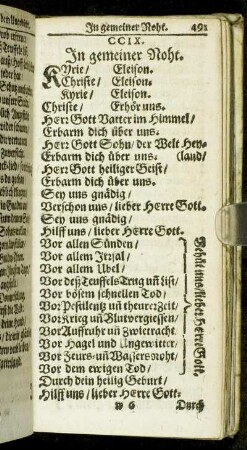 In gemeiner Noht. 491
CCIX.
In gemeiner Noht.
Kyrie/ Eleison.
Christe/ Eleison.
Kyrie/ Eleison.
Christe/ Erhör uns.
HErr Gott Vatter im Himmel/
Erbarm dich über uns.
HErr Gott Sohn/ der Welt Hey-
Erbarm dich über uns. (land/
HErr Gott heiliger Geist/
Erbarm dich über uns.
Sey uns gnädig/
Verschon uns/ lieber HErre Gott.
Sey uns gnädig/
Hilff uns/ lieber HErre Gott.
Vor allen Sünden/
Vor allem Irrsal/
Vor allem Übel/
Vor deß Teuffels Trug uñ List/
Vor bösem schnellen Tod/
Vor Pestilentz uñ theurer Zeit/
Vor Krieg uñ Blutvergiessen/
Vor Auffruhr uñ Zwietracht.
Vor Hagel und Ungewitter/
Vor Feurs- uñ Wassersnoht/
Vor dem ewigen Tod/
Behüt uns/ lieber HErre Gott.
Durch dein heilig Geburt/
Hilff uns/ lieber HErre Gott.
Durch